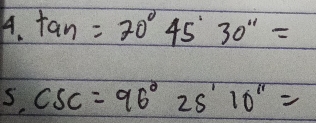 4. tan = 20° 45' 30" =
5. CSC = 96° 25' 10" =